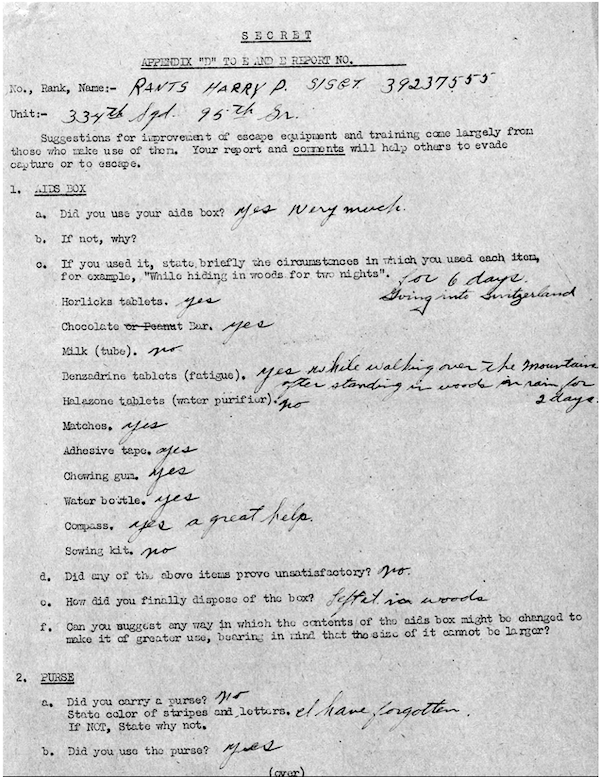 SECRET
APPENDIX "D" TO E AND E REPORT NO.
No., Rank, Name:- RANTS HARRY P. S/SGT. 39237555
Unit:- 334th Sqd. 95th Gr.
Suggestions for improvement of escape equipment and training come largely from
those who make use of them. Your report and comments will help others to evade
capture or to escape.
1. AIDS BOX
a. Did you use your aids box? yes very much.
b. If not, why?
c. If you used it, state briefly the circumstances in which you used each item,
for example, "While hiding in woods for two nights". for 6 days.
Going into Switzerland
Horlicks tablets. yes
Chocolate or Peanut Bar. yes
Milk (tube). no
Benzadrine tablets (fatigue). yes while walking over the mountains
after standing in woods in rain for
2 days.
Halazone tablets (water purifier). no
Matches. yes
Adhesive tape. yes
Chewing gum. yes
Water bottle. yes
Compass. yes a great help.
Sewing kit. no
d. Did any of the above items prove unsatisfactory? no.
e. How did you finally dispose of the box? left it in woods
f. Can you suggest any way in which the contents of the aids box might be changed to
make it of greater use, bearing in mind that the size of it cannot be larger?
2. PURSE
a. Did you carry a purse? no
State color of stripes and letters. I have forgotten.
If NOT, State why not.
b. Did you use the purse? yes
(over)